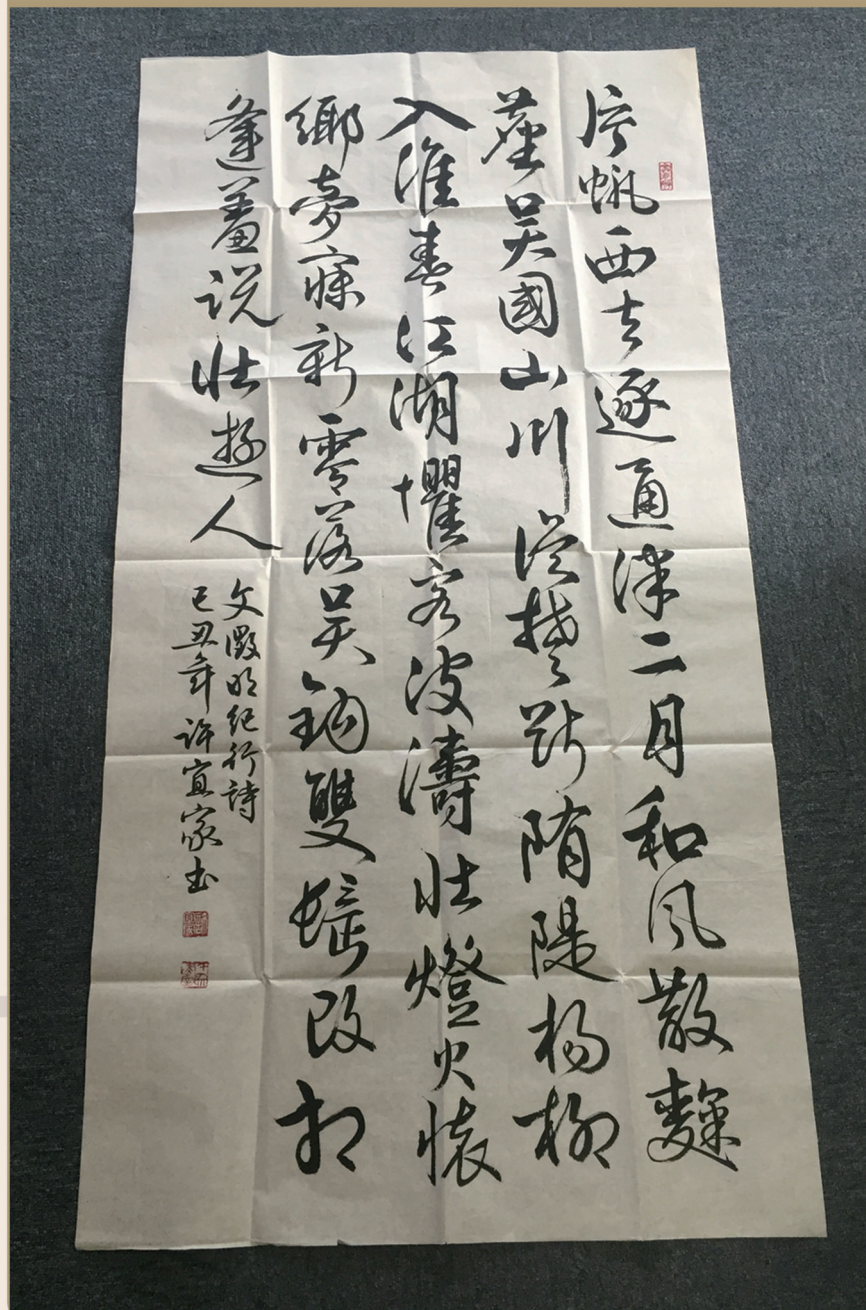 片帆西去逐通津二月和風散麴
塵吳國山川從楚斷隋隄楊柳
入淮春江湖懼客波濤壯燈火懷
鄉夢寐新零落吳鉤雙鬢改相
逢羞說壯遊人
文徵明紀行詩
己丑年許宜家书